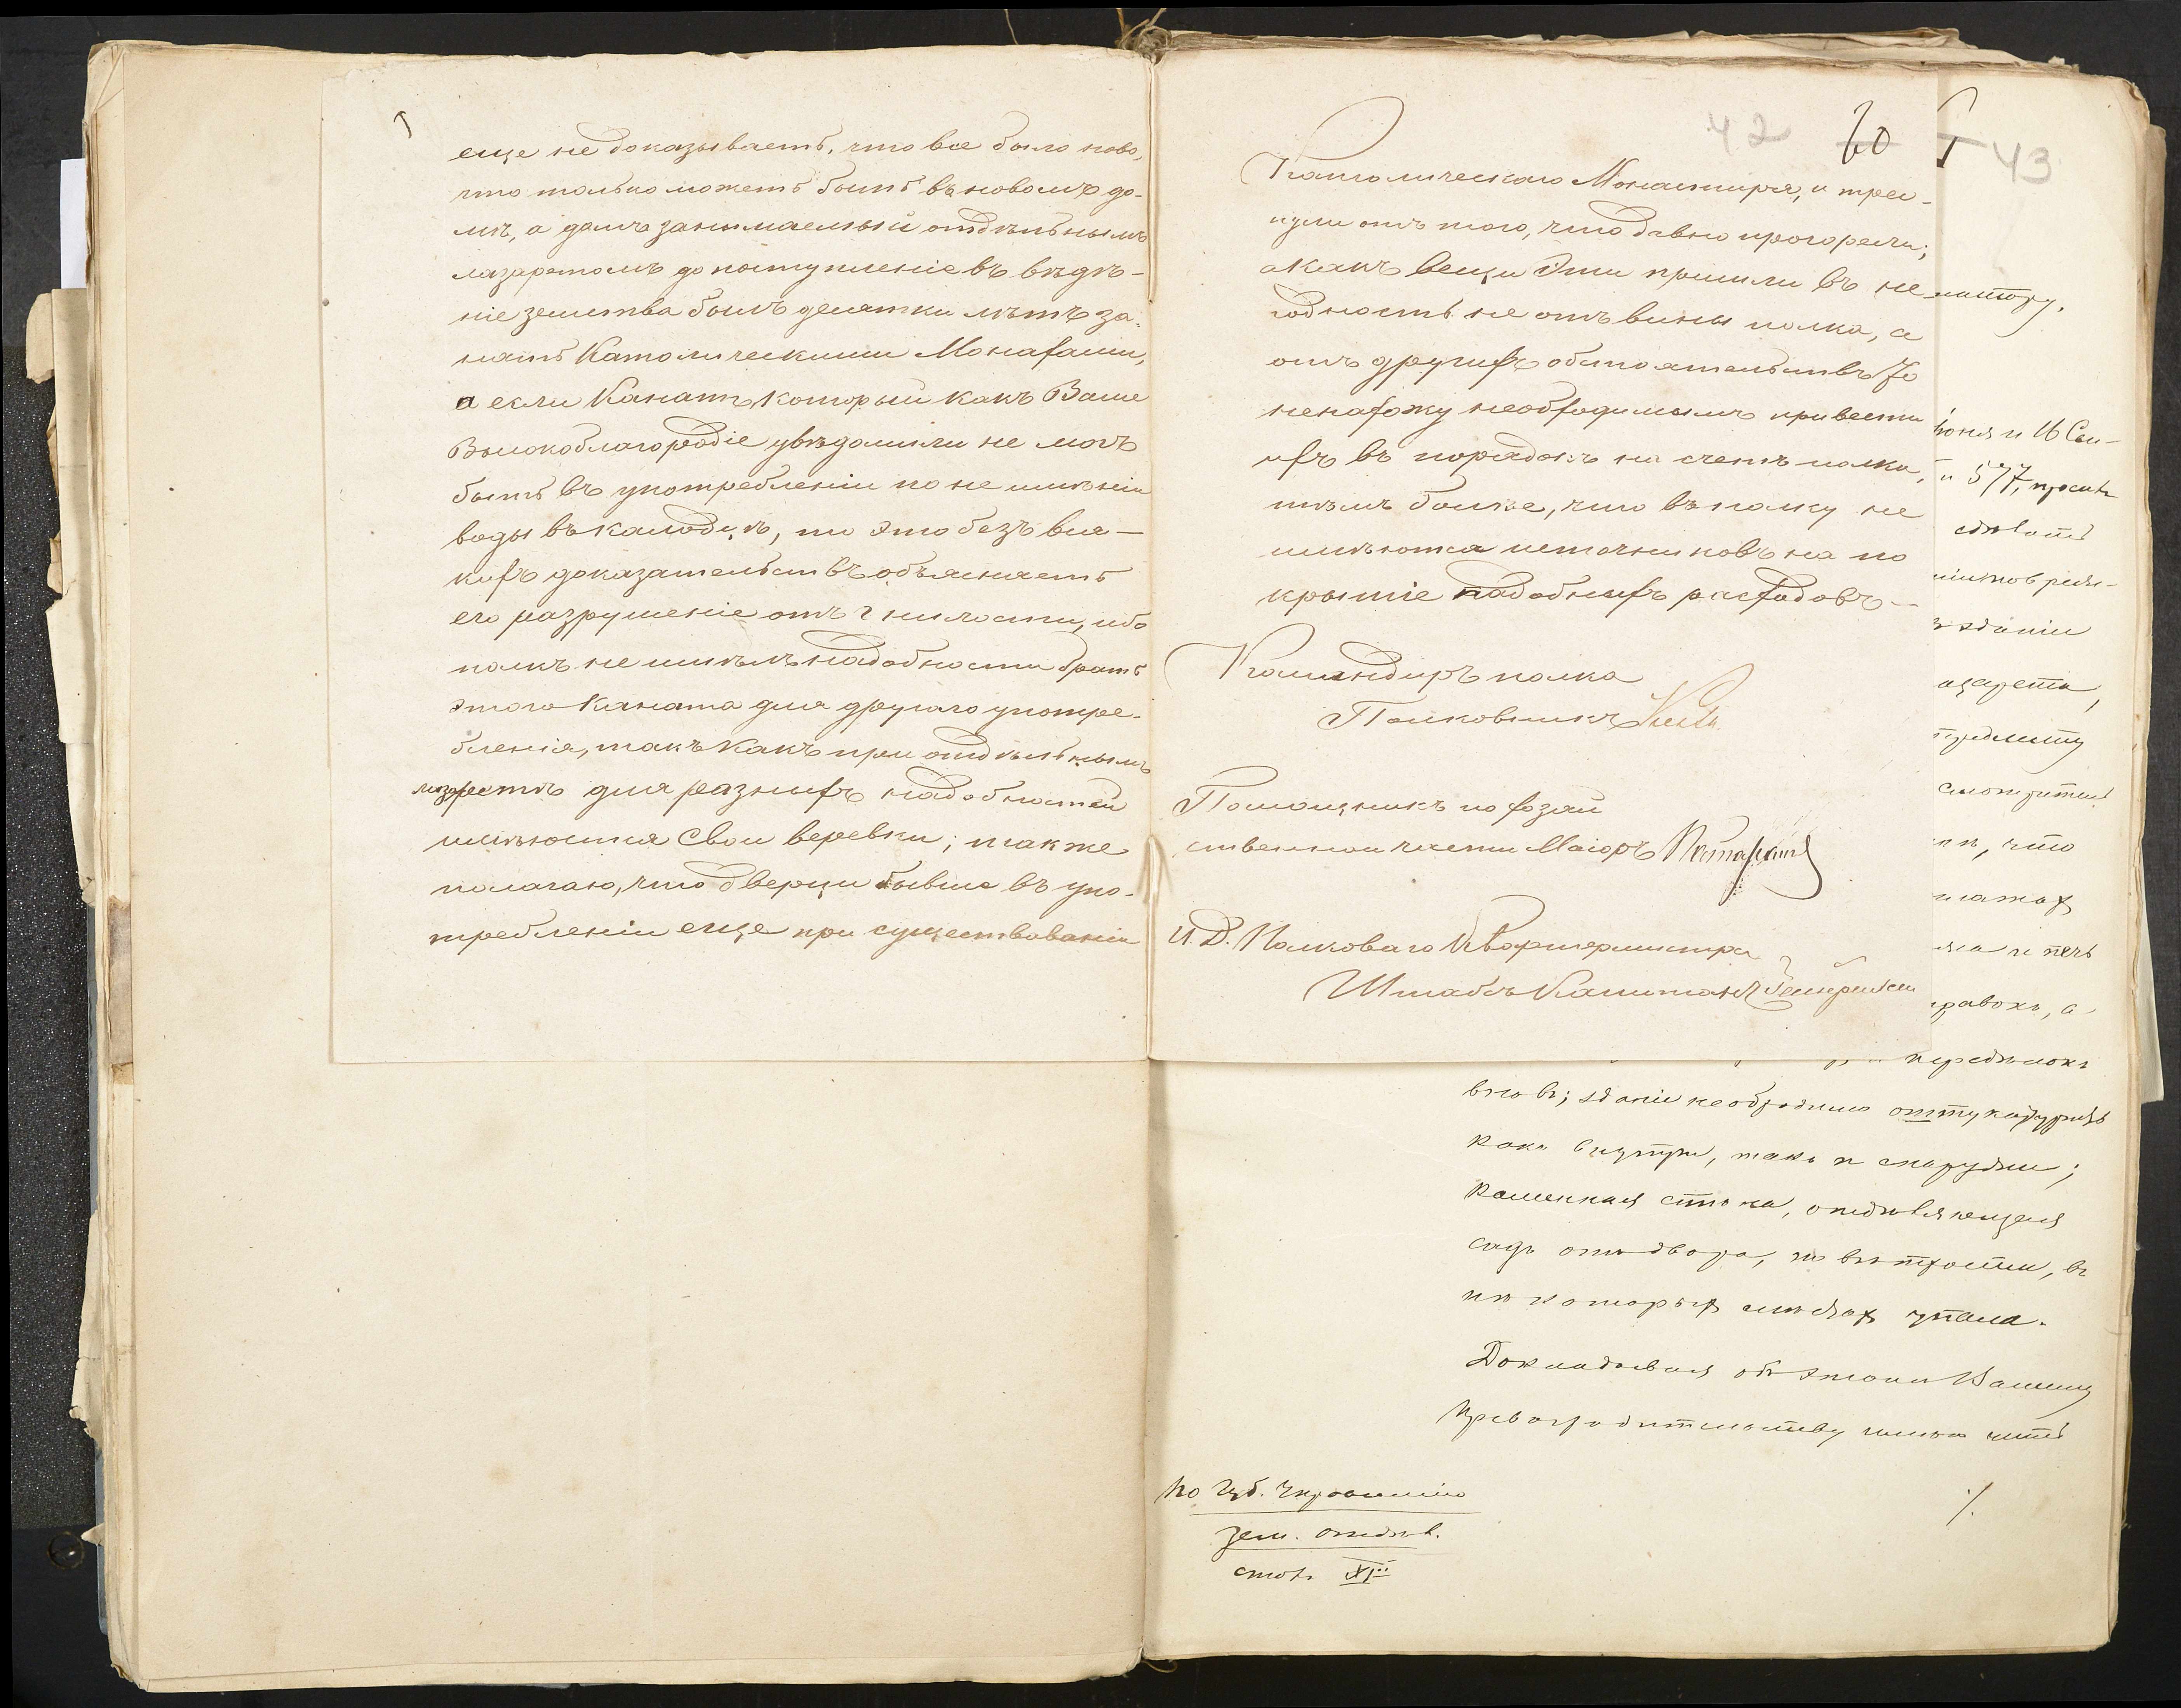 еще не доказываетъ, что все было ново,
что только можетъ быть въ новомъ до-
мѣ, а домъ занимаемый отдѣльнымъ
лазаретомъ до поступленіе въ вѣдѣ-
ніе земства былъ десятки лѣтъ за-
нятъ Католическими Монахами,
а если Канатъ, который какъ Ваше
Высокоблагородіе увѣдомили не могъ
быть въ употребленіи по не имѣнію
воды въ калодцѣ, то это безъ вся-
кихъ доказательствъ объясняетъ
его разрушеніе отъ гнилости, ибо
полкъ не имѣлъ надобности брать
этого Каната для другаго употре-
бленія, такъ какъ при отдѣльнымъ
лазаретѣ для разныхъ надобностей
имѣются свои веревки; также
полагаю, что дверцы бывше въ упо-
требленіи еще при существованіи
42 60
Католическаго Монастыря, и трес-
нули отъ того, что давно прогорели;
а какъ вещи эти пришли въ не
годность не отъ вины полка, а
отъ другихъ обстоятельствъ то
ненахожу необходимымъ привести
ихъ въ порядокъ на счетъ полка,
тѣмъ болѣе, что въ полку не
имѣются источниковъ на по
крытіе подобныхъ расходовъ.—
Командиръ полка
Полковникъ
Помощникъ по хозяй
ственной части Маіоръ
И.Д. Полковаго Квартермистра
Штабсъ Капитанъ
43
и 577, просить
зданіи
что
и печь
а
передѣлокъ
вновь; зданіе необходимо оштукатурить
какъ внутри, такъ и снаружи;
каменная стѣна, отдѣляющая
садъ отъ двора, по ветхости, въ
нѣкоторыхъ мѣстахъ упала.
Докладывая объ этомъ Вашему
Превосходительству имѣю честь
По Губ. Правленію
зем. отдѣл.
столъ